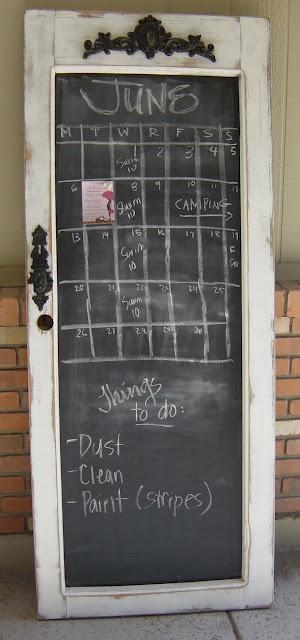 JUNE
M T W R F S S
1 2 3 4 5
Swim
10
6 8 9 10 11 12
Swim
10
CAMPING
13 14 15 16 17 18 19
Swim
10
20 21 22 23 24 25
Swim
10
26 27 28 29 30
Things
to do:
-Dust
-Clean
-Paint (stripes)